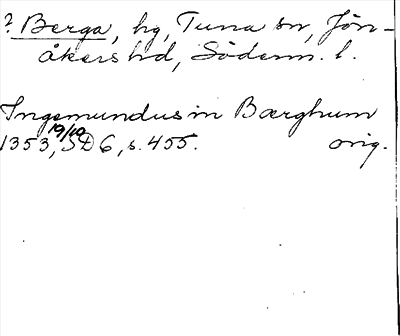 ? Berga, hg, Tuna sn, Jön-
åkers hd, Söderm. l.
Ingemundus in Bærghum
1353 19/10, SD 6, s. 455. orig.